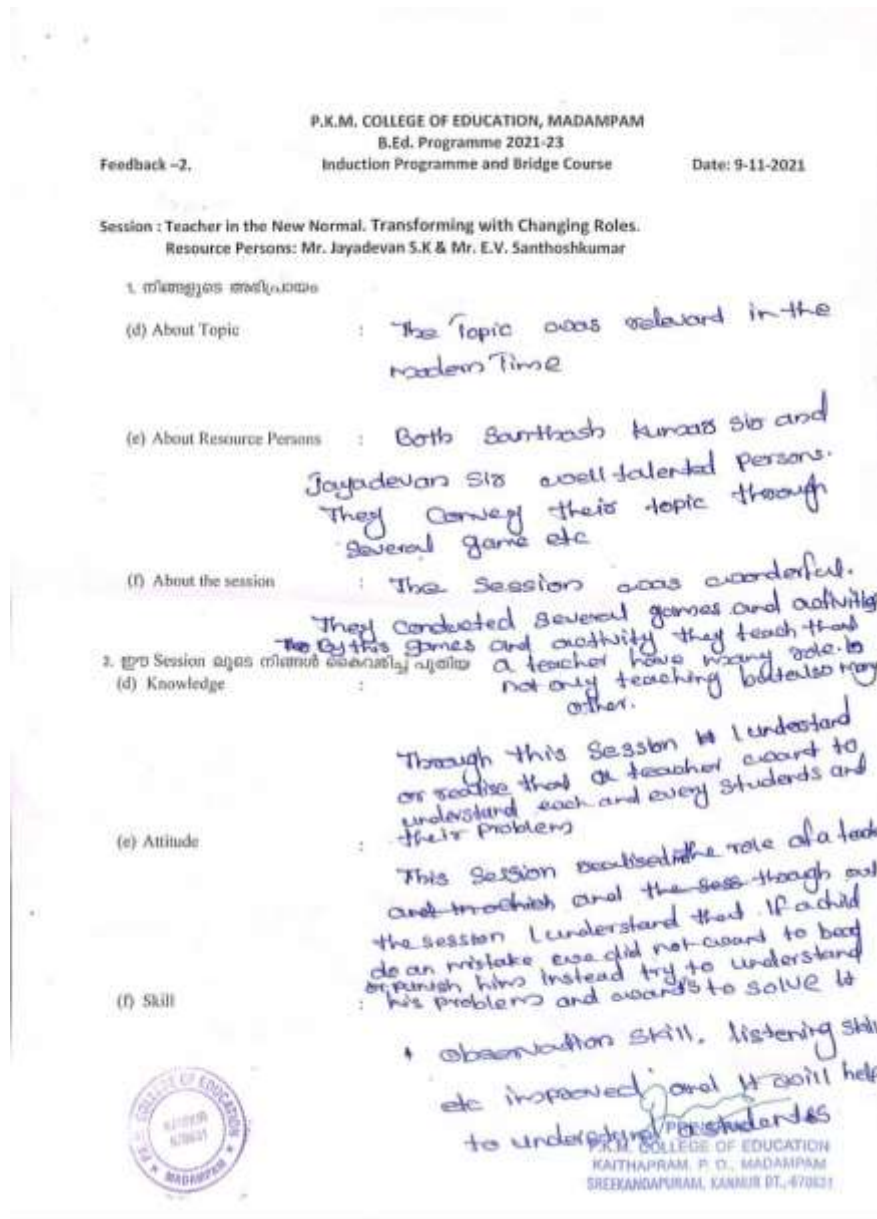 P.K.M. COLLEGE OF EDUCATION, MADAMPAM
B.Ed. Programme 2021-23
Feedback –2. Induction Programme and Bridge Course Date: 9-11-2021
Session : Teacher in the New Normal. Transforming with Changing Roles.
Resource Persons: Mr. Jayadevan S.K & Mr. E.V. Santhoshkumar
1. നിങ്ങളുടെ അഭിപ്രായം
(d) About Topic : The Topic was relevant in the
modern Time
(e) About Resource Persons : Both Santhosh Kumar sir and
Jayadevan sir well talented persons.
They Convey their topic through
several game etc
(f) About the session : The Session was wonderful.
They conducted several games and activities
By this games and activity they teach that
2. ഈ Session ലൂടെ നിങ്ങൾ കൈവരിച്ച പുതിയ a teacher have many role. Is
(d) Knowledge : not only teaching but also many
other.
Through this Session I understand
or realise that a teacher want to
understand each and every students and
(e) Attitude : their problem
This Session realised the role of a teach
and and the sess though out
the session I understand that If a child
do an mistake we did not want to beat
or punish him instead try to understand
(f) Skill : his problem and wants to solve it
observation skill, listening skill
etc improved and it will help
to understand a students
P.K.M. COLLEGE OF EDUCATION
KAITHAPRAM P. O., MADAMPAM
SREEKANDAPURAM, KANNUR DT.,-670631
COLLEGE OF EDUCATION
670631
MADAMPAM